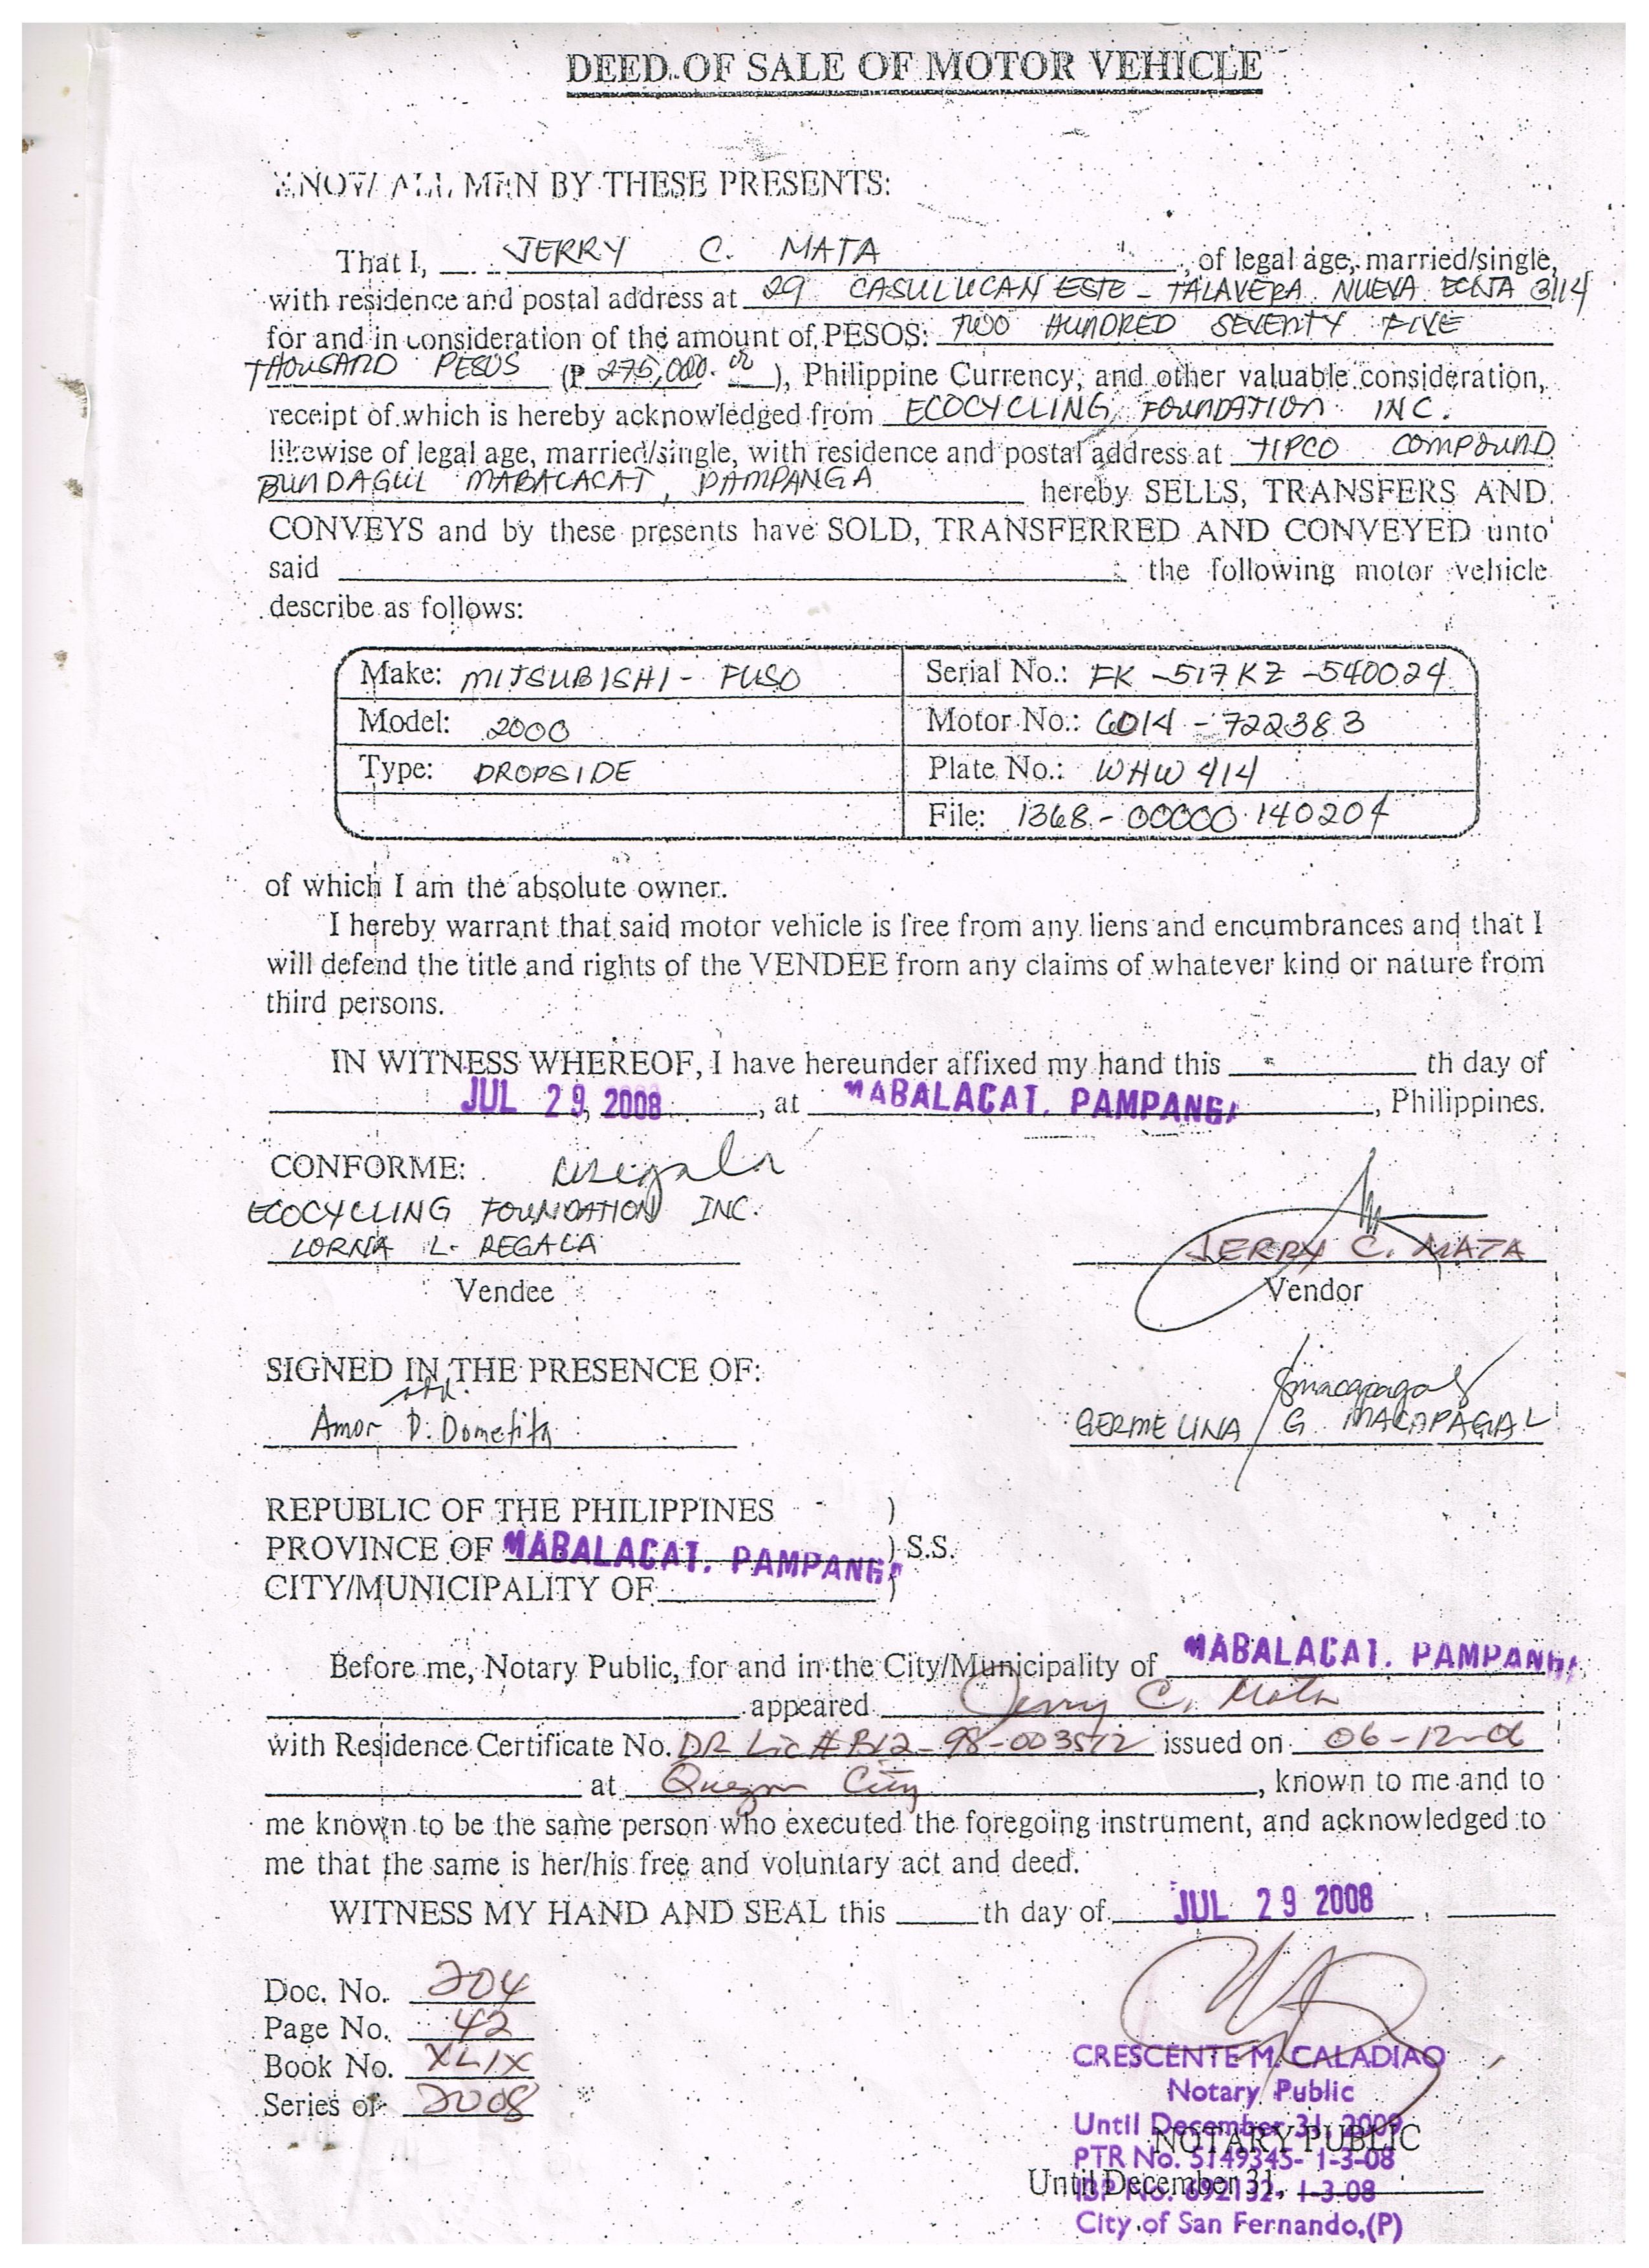 DEED OF SALE OF MOTOR VEHICLE
KNOW ALL MEN BY THESE PRESENTS:
That I, JERRY C. MATA, of legal age, married/single,
with residence and postal address at 29 CASULUCAN ESTE - TALAVERA NUEVA ECIJA 3114
for and in consideration of the amount of PESOS: TWO HUNDRED SEVENTY FIVE
THOUSAND PESOS (P 275,000.00), Philippine Currency, and other valuable consideration,
receipt of which is hereby acknowledged from ECOCYCLING FOUNDATION INC.
likewise of legal age, married/single, with residence and postal address at TIPCO COMPOUND
BUNDAGUL MABALACAT, PAMPANGA hereby SELLS, TRANSFERS AND
CONVEYS and by these presents have SOLD, TRANSFERRED AND CONVEYED unto
said the following motor vehicle
describe as follows:
Make: MITSUBISHI - FUSO Serial No.: FK -517KZ -540024
Model: 2000 Motor No.: 6D14 - 722383
Type: DROPSIDE Plate No.: WHW 414
File: 1368 - 00000 140204
of which I am the absolute owner.
I hereby warrant that said motor vehicle is free from any liens and encumbrances and that I
will defend the title and rights of the VENDEE from any claims of whatever kind or nature from
third persons.
IN WITNESS WHEREOF, I have hereunder affixed my hand this th day of
JUL 29, 2008, at MABALACAT, PAMPANGA, Philippines.
CONFORME:
ECOCYCLING FOUNDATION INC.
LORNA L. REGALA JERRY C. MATA
Vendee Vendor
SIGNED IN THE PRESENCE OF:
Amor D. Dometita GERMELINA G. MACAPAGAL
REPUBLIC OF THE PHILIPPINES )
PROVINCE OF MABALACAT, PAMPANGA ) S.S.
CITY/MUNICIPALITY OF )
Before me, Notary Public, for and in the City/Municipality of MABALACAT, PAMPANGA
appeared Jerry C. Mata
with Residence Certificate No. DR Lic # B12-98-003512 issued on 06-12-06
at Quezon City, known to me and to
me known to be the same person who executed the foregoing instrument, and acknowledged to
me that the same is her/his free and voluntary act and deed.
WITNESS MY HAND AND SEAL this th day of JUL 29 2008,
Doc. No. 204
Page No. 42
Book No. XLIX
Series of 2008
CRESCENTE M. CALADIAO
Notary Public
Until December 31, 2009
NOTARY PUBLIC
PTR No. 5149345- 1-3-08
Until December 31,
IBP No. 692132- 1-3-08
City of San Fernando,(P)